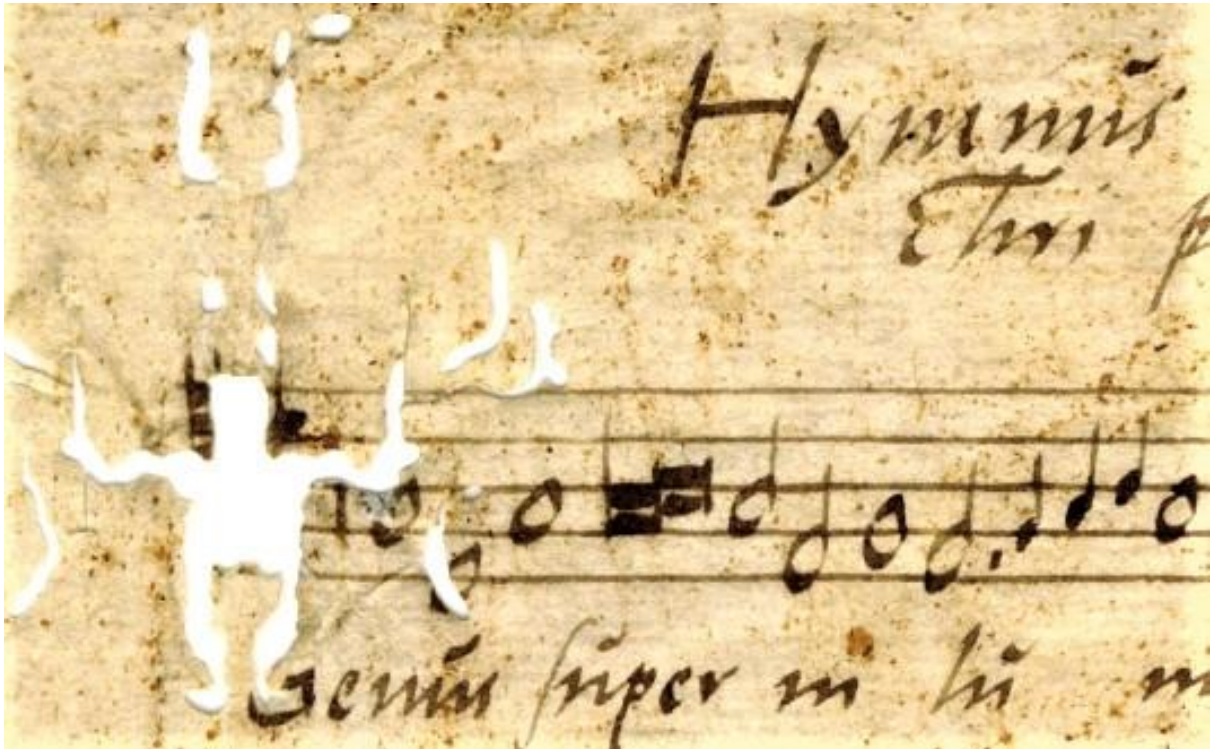 Hymnus
Genus ſuper ni lu